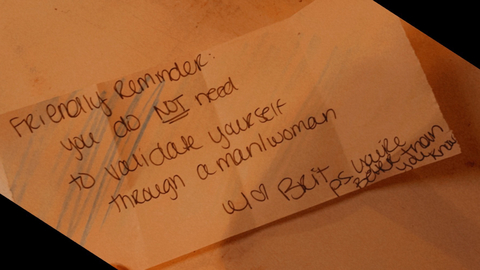 Friendly Reminder:
you do NOT need
to validate yourself
through a man/woman
w/♡ Brit
PS you're
better than
you know